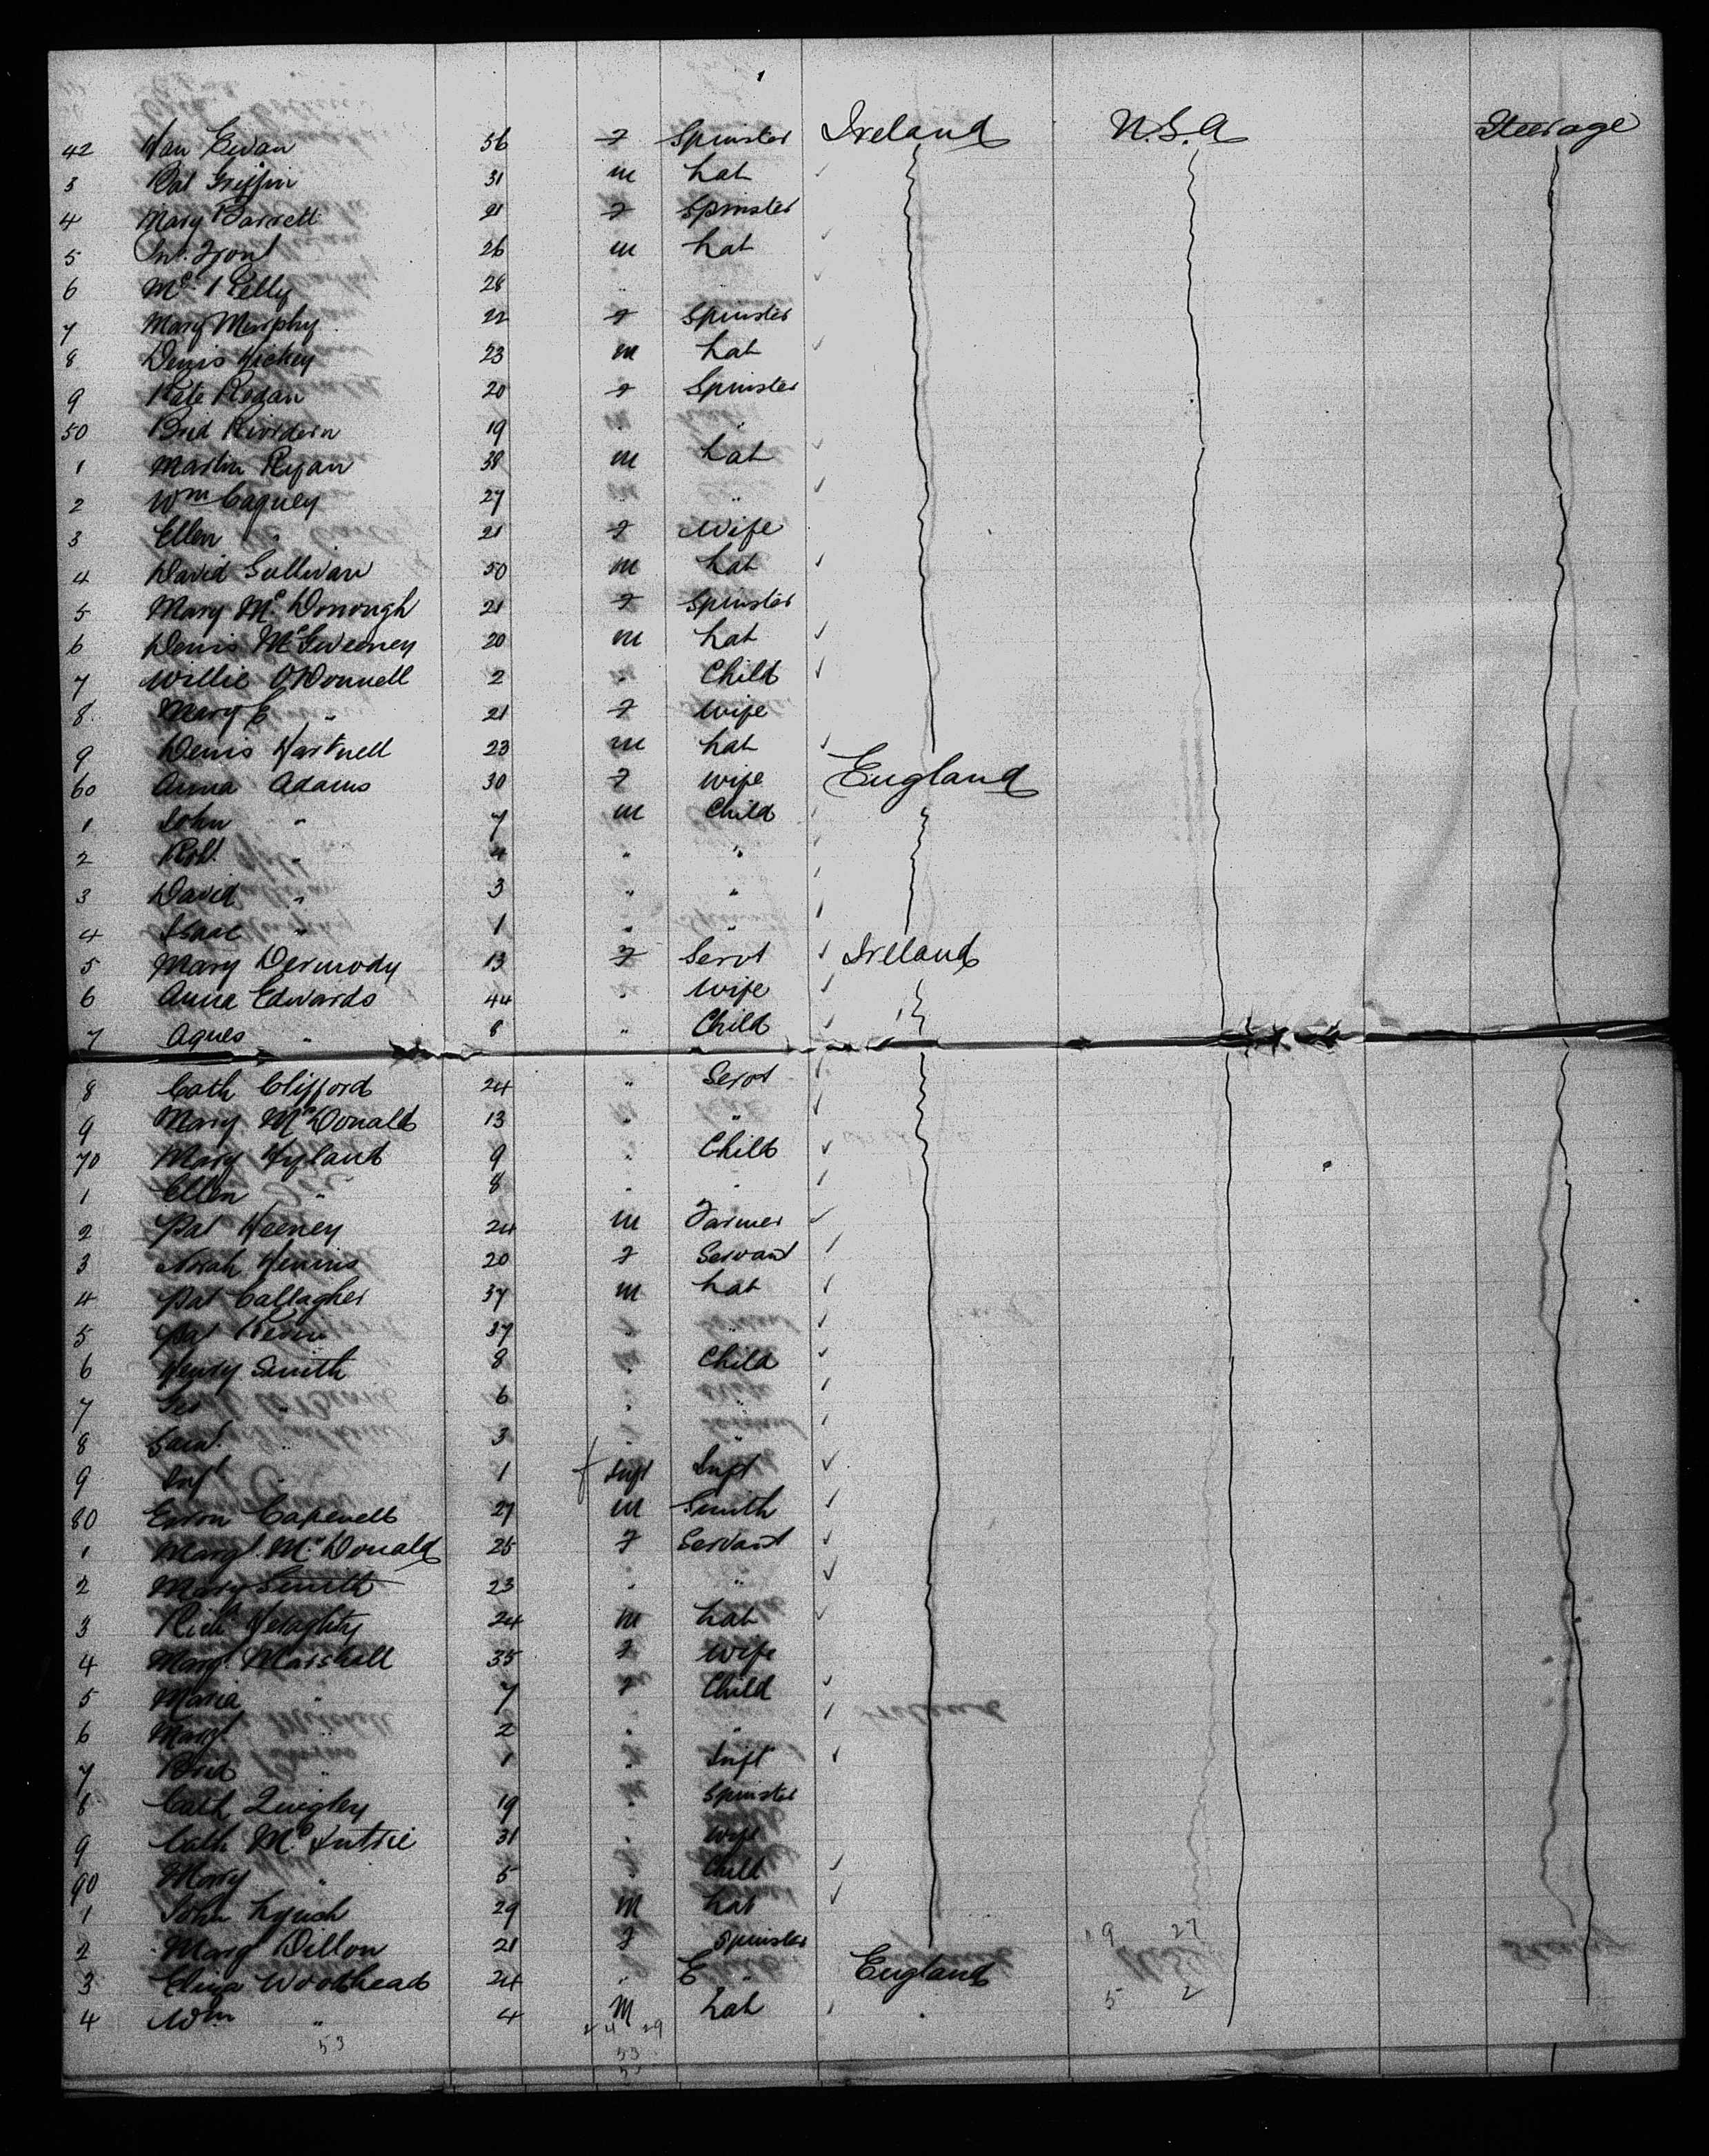 42 Han Ewan 56 F Spinster Ireland U.S.A Steerage
3 Pat Griffin 31 m Lab
4 Mary Barrett 21 F Spinster
5 26 m Lab
6 Kelly 28 "
7 Mary Murphy 22 F Spinster
8 Denis Hickey 23 m Lab
9 Kate Regan 20 F Spinster
50 Brid Riordern 19 " "
1 Martin Ryan 38 m Lab
2 Wm Cagney 27 " "
3 Ellen " 21 F Wife
4 David Sullivan 50 m Lab
5 Mary McDonough 21 F Spinster
6 Denis McSweeney 20 m Lab
7 Willie O'Donnell 2 " Child
8 Mary E " 21 F Wife
9 Denis Hartnell 23 m Lab
60 Anna Adams 30 F Wife England
1 John " 7 m Child
2 Robt " 4 " "
3 David " 3 " "
4 Isaac " 1 " "
5 Mary Dermody 13 F Servt Ireland
6 Anna Edwards 44 " Wife
7 Agnes " 8 " Child
8 Cath Clifford 24 " Servt
9 Mary McDonald 13 " "
70 Mary Hyland 9 " Child
1 Ellen " 8 " "
2 Pat Heeney 24 m Farmer
3 Norah 20 F Servant
4 Pat Callagher 37 m Lab
5 Pat 37 " "
6 Henry Smith 8 " Child
7 Geo " 6 " "
8 Saml " 3 " "
9 Inft " 1 Inft Inft
80 Capewell 27 m Smith
1 Margt McDonald 25 F Servant
2 Mary Smith 23 " "
3 Richd Heraghty 24 m Lab
4 Margt Marshall 35 F Wife
5 Maria " 7 F Child
6 Margt " 2 " "
7 Brid " 1 " Inft
8 Cath Quigley 19 " Spinster
9 Cath 31 " Wife
90 Mary " 5 " Child
1 John Lynch 29 M Lab
2 Mary Dillon 21 F Spinster 19 27
3 Eliza Woodhead 24 " E " England
4 Wm " 4 M Lab 5 2
53 24 29
53